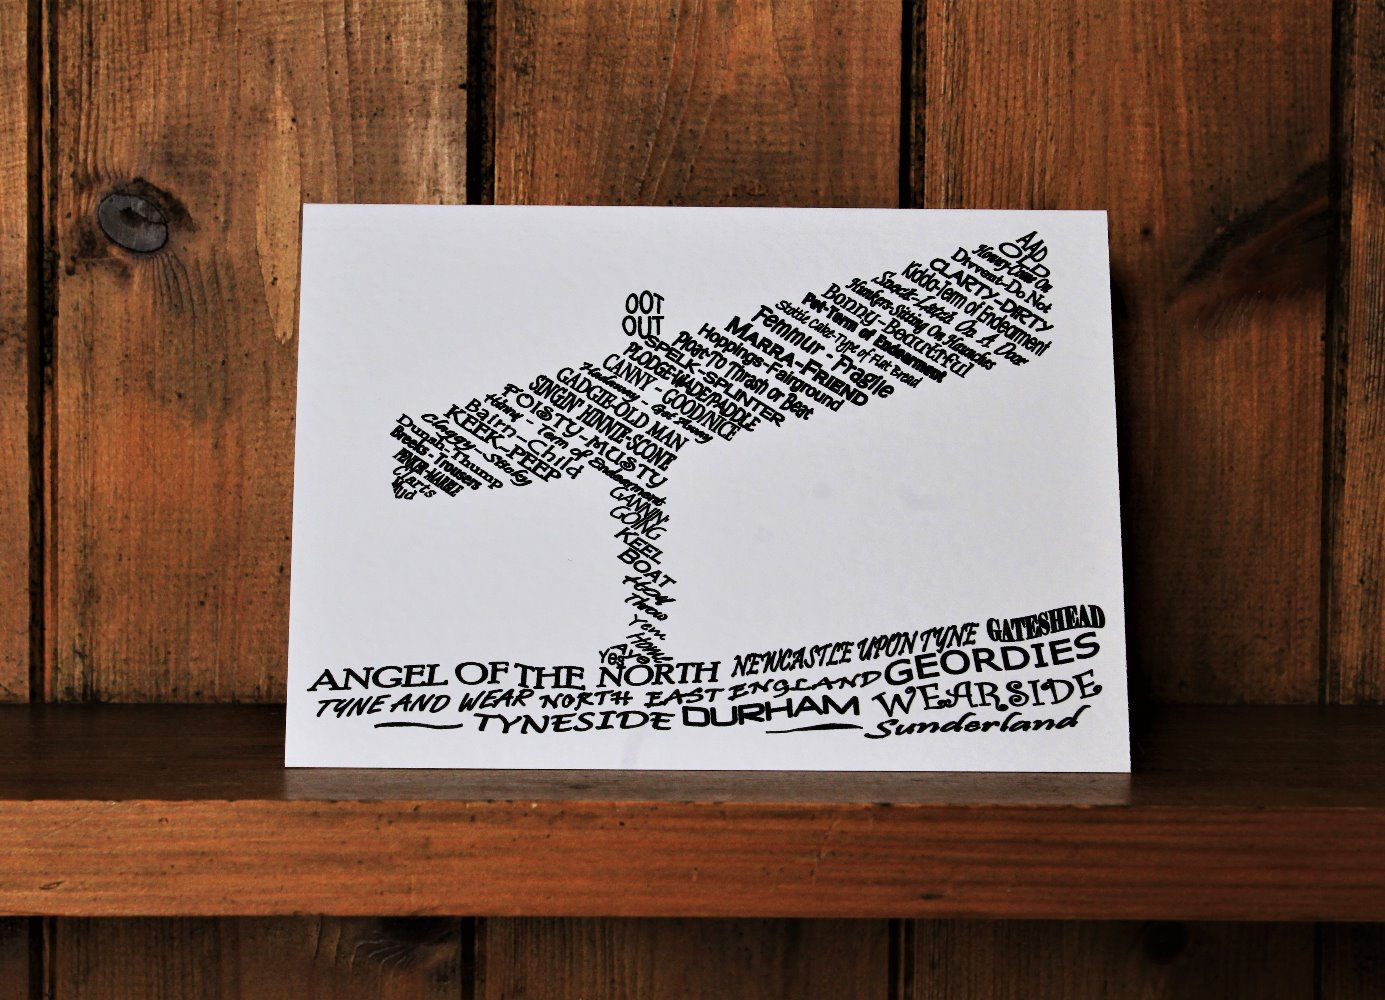 AAD
OLD
Howay-Come On
Divvent-Do Not
CLARTY-DIRTY
Kidda-Term of Endearment
Sneck-Latch On A Door
Hunkers-Sitting On Haunches
Bonny-Beautiful
Pet-Term of Endearment
Stottie Cake-Type of Flat Bread
Femmur-Fragile
MARRA-FRIEND
Hoppings-Fairground
Ploat-To Thrash or Beat
SPELK-SPLINTER
PLODGE-WADE/PADDLE
OOT
OUT
CANNY-GOOD/NICE
Hadaway-Get Away
GADGIE-OLD MAN
SINGIN' HINNIE-SCONE
FOISTY-MUSTY
Hinny-Term of Endearment
Bairn-Child
KEEK-PEEP
Claggy-Sticky
Dunsh-Thump
Breeks-Trousers
PENKER-MARBLE
Clarts
Mud
GANNIN'
GOING
KEEL
BOAT
Hoy
Throw
Yem
Home
Yes
ANGEL OF THE NORTH NEWCASTLE UPON TYNE GATESHEAD
TYNE AND WEAR NORTH EAST ENGLAND GEORDIES
TYNESIDE DURHAM WEARSIDE
Sunderland